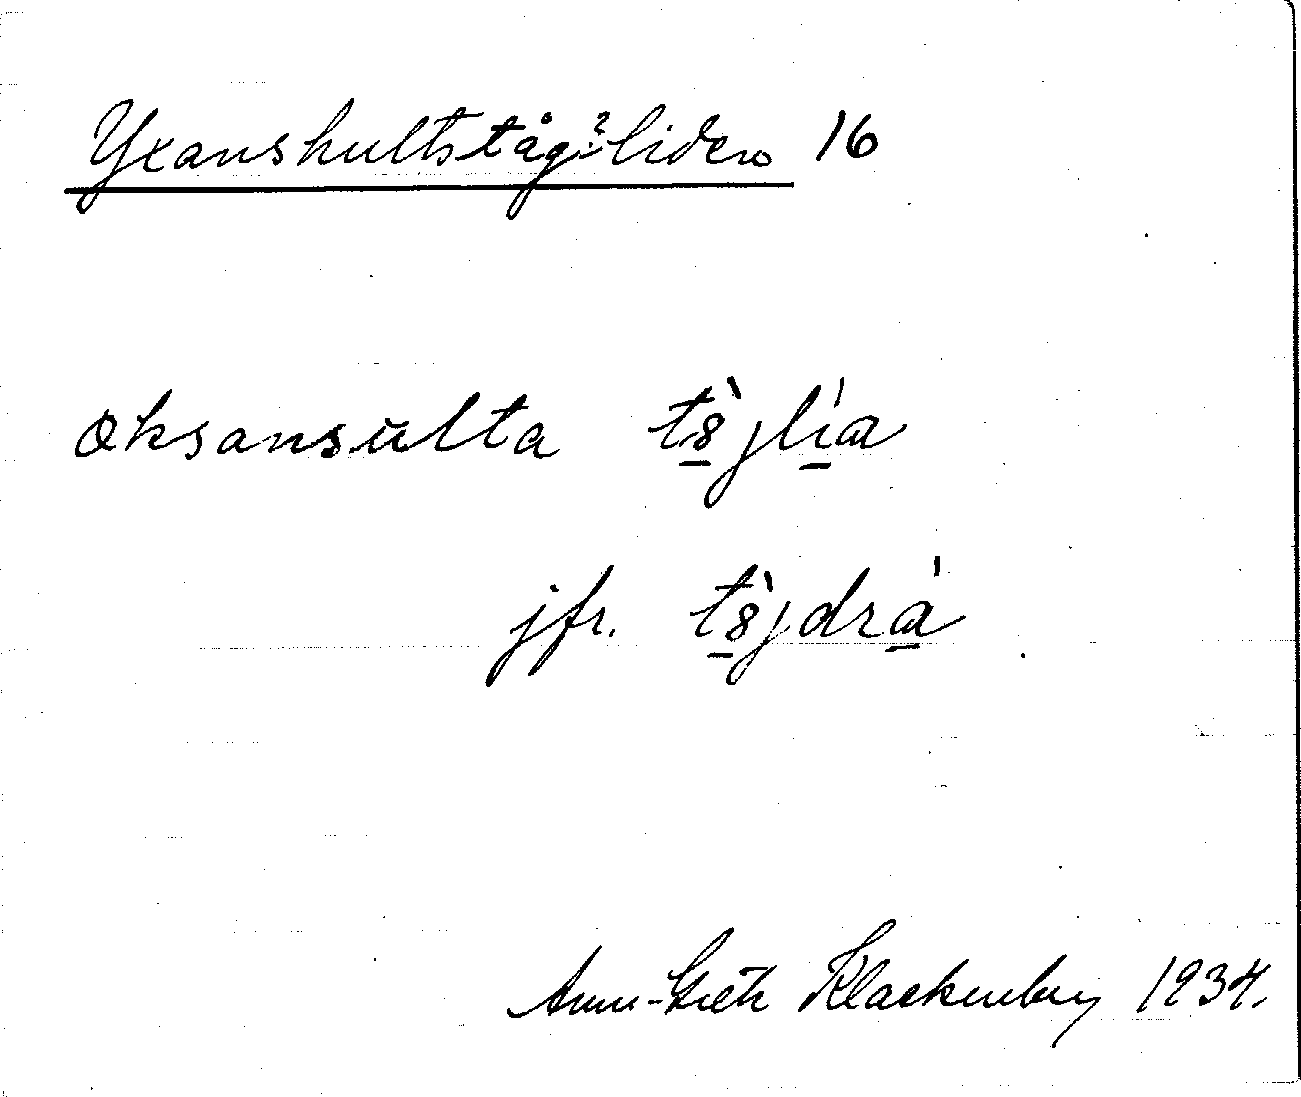 Yxanshultståg?liden 16
oksansulta tö̀jlía
jfr. tö̀jdrá
Ann-Greth Klackenberg 1934.